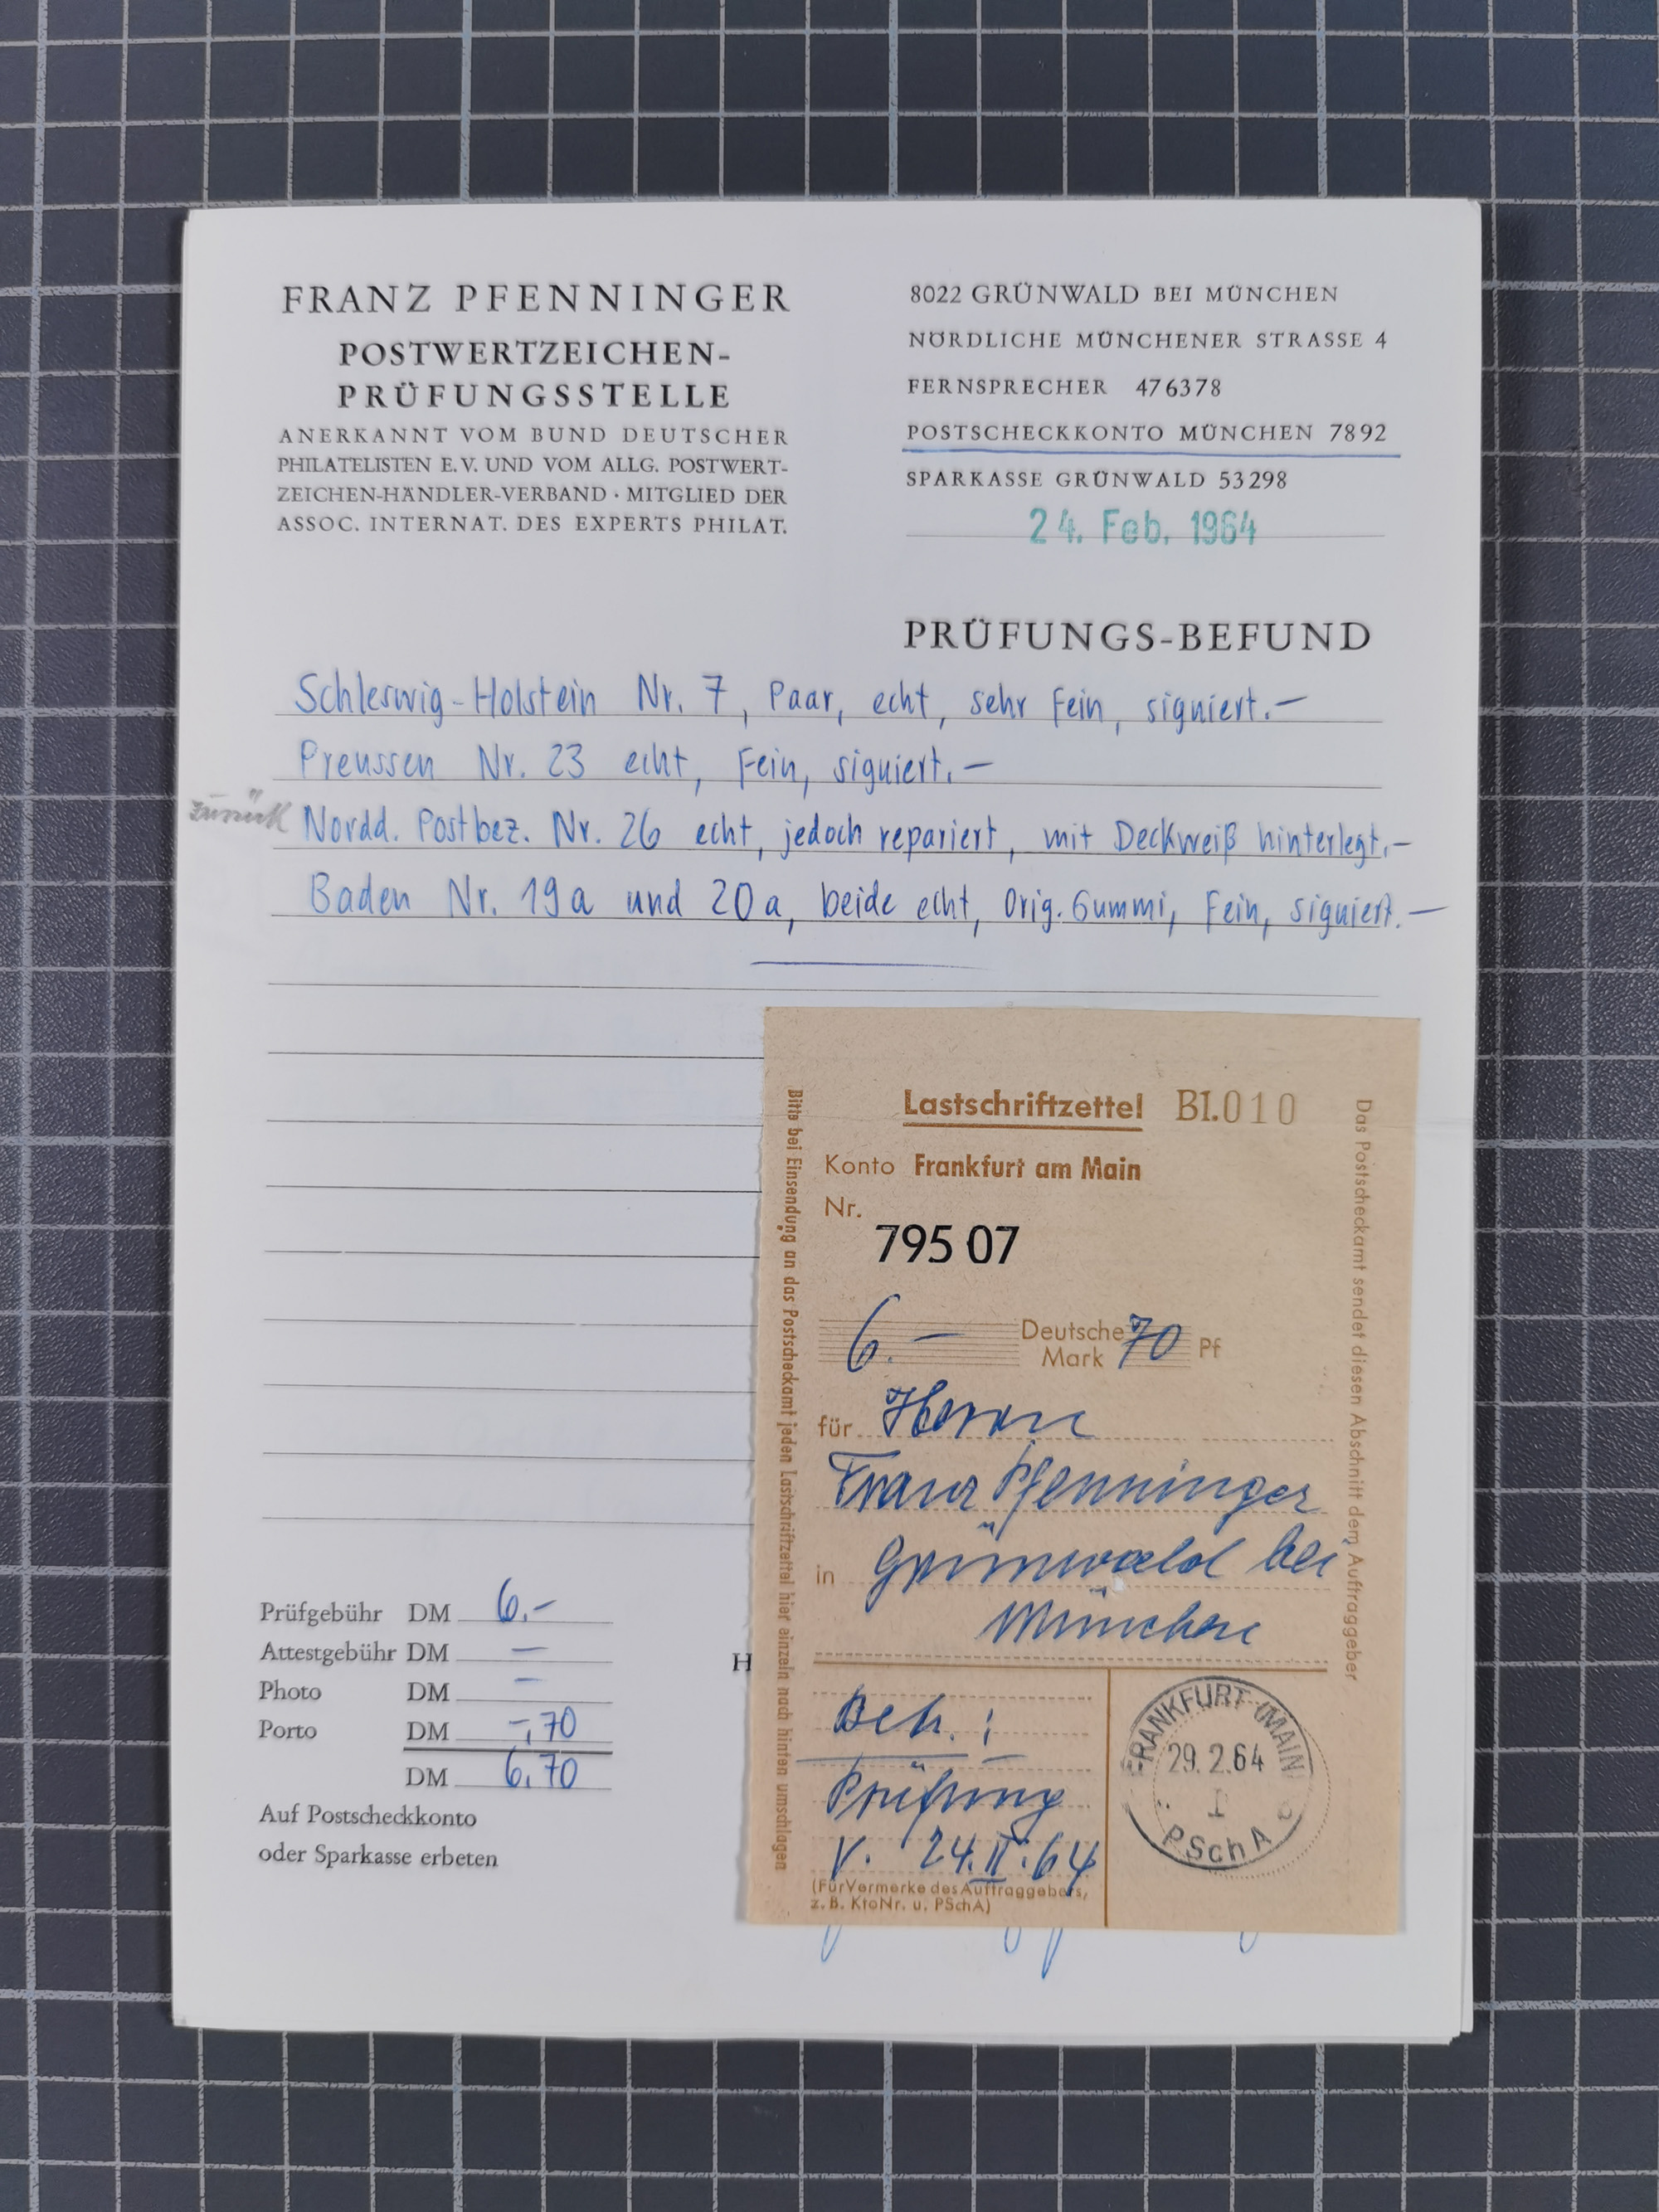 FRANZ PFENNINGER
POSTWERTZEICHEN-
PRÜFUNGSSTELLE
ANERKANNT VOM BUND DEUTSCHER
PHILATELISTEN E.V. UND VOM ALLG. POSTWERT-
ZEICHEN-HÄNDLER-VERBAND · MITGLIED DER
ASSOC. INTERNAT. DES EXPERTS PHILAT.
8022 GRÜNWALD BEI MÜNCHEN
NÖRDLICHE MÜNCHENER STRASSE 4
FERNSPRECHER 476378
POSTSCHECKKONTO MÜNCHEN 7892
SPARKASSE GRÜNWALD 53298
24. Feb. 1964
PRÜFUNGS-BEFUND
Schleswig-Holstein Nr. 7, Paar, echt, sehr fein, signiert.—
Preussen Nr. 23 echt, fein, signiert.—
zurück Nordd. Postbez. Nr. 26 echt, jedoch repariert, mit Deckweiß hinterlegt.—
Baden Nr. 19a und 20a, beide echt, Orig. Gummi, fein, signiert.—
Prüfgebühr DM 6.-
Attestgebühr DM —
Photo DM —
Porto DM -,70
DM 6,70
Auf Postscheckkonto
oder Sparkasse erbeten
H
Lastschriftzettel BI.010
Konto Frankfurt am Main
Nr.
795 07
6.— Deutsche Mark 70 Pf
für Herrn
Franz Pfenninger
in Grünwald bei
München
Betr.:
Prüfung
v. 24.II.64
(Für Vermerke des Auftraggebers,
z. B. KtoNr. u. PSchA)
FRANKFURT (MAIN)
29.2.64
PSchA
Bitte bei Einsendung an das Postscheckamt jeden Lastschriftzettel hier einzeln nach hinten umschlagen
Das Postscheckamt sendet diesen Abschnitt dem Auftraggeber